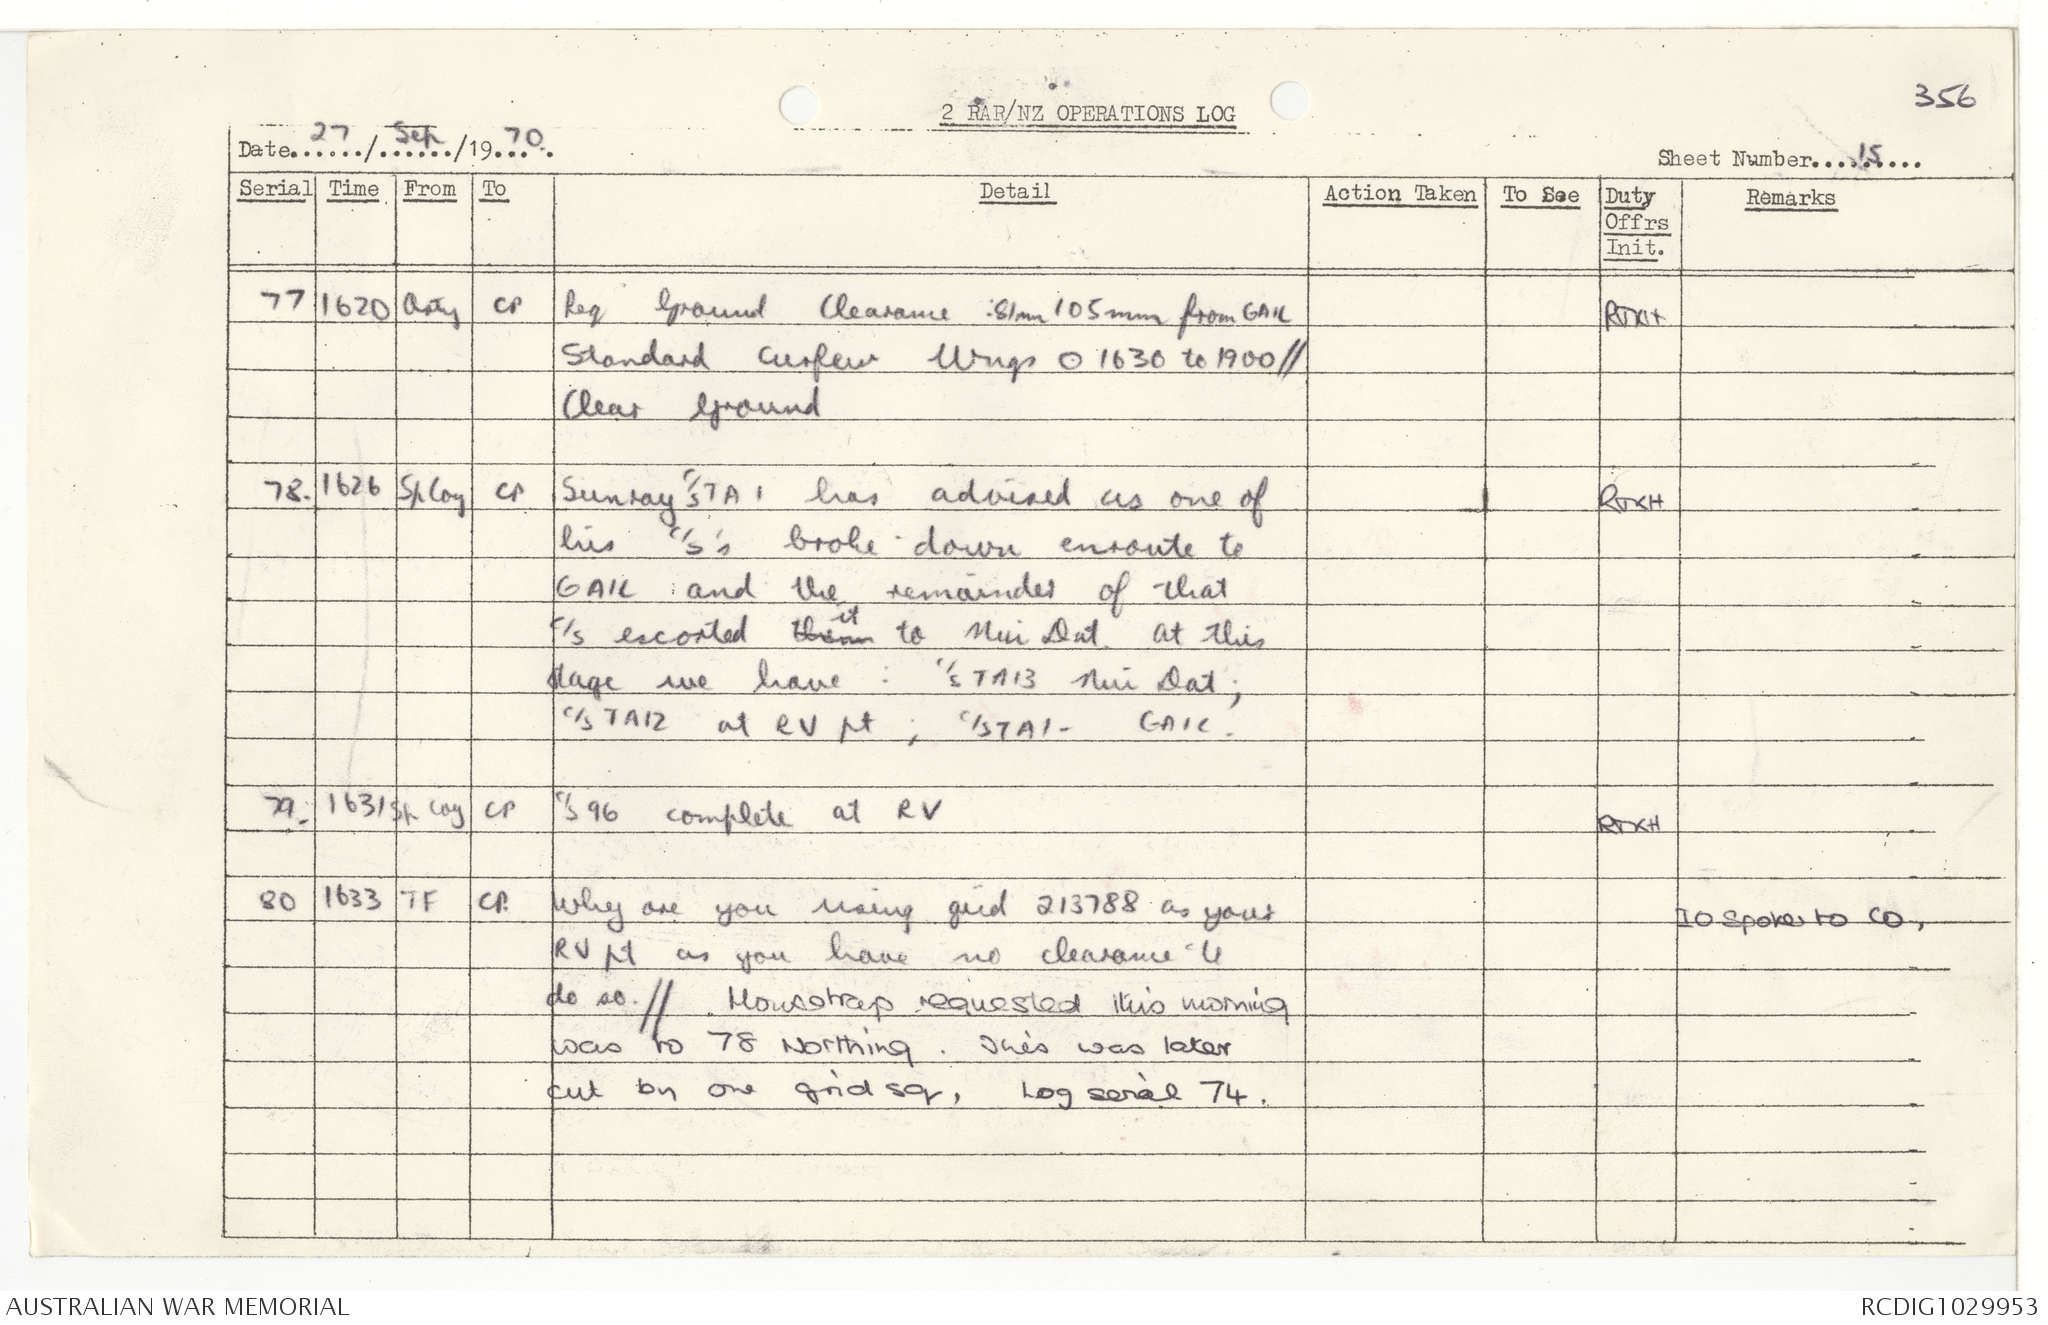 356
2 RAR/NZ OPERATIONS LOG
Date 27/Sep/1970.
Sheet Number 15
Serial Time From To Detail Action Taken To See Duty Offrs Init. Remarks
77 1620 Arty CP Req Ground Clearance 81mm 105mm from GAIL
Standard Curfew 1630 to 1900//
Clear Ground
78. 1626 Sp Coy CP Sunray c/s TA1 has advised us one of RJKH
his c/s's broke down enroute to
GAIL and the remainder of that
c/s escorted them it to Nui Dat. At this
stage we have : c/s TA13 Nui Dat;
c/s TA12 at RV pt ; c/s TA1 - GAIL.
79. 1631 Sp Coy CP c/s 96 complete at RV RJKH
80 1633 TF CP. Why are you using grid 213788 as your IO spoke to CO,
RV pt as you have no clearance to
do so. // Mousetrap requested this morning
was to 78 Northing. This was later
cut by one grid sq, Log serial 74.
AUSTRALIAN WAR MEMORIAL RCDIG1029953